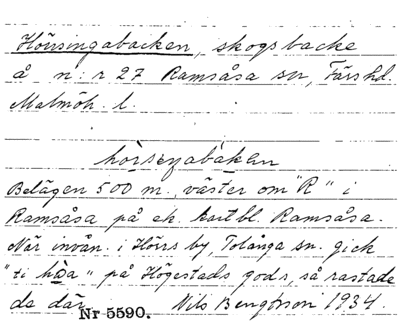 Hörsingabacken, skogsbacke
å n:r 27 Ramsåsa sn, Färs hd.
Malmöh. l.
hòrseŋabàkan
Belägen 500 m. väster om "R" i
Ramsåsa på ek. kartbl. Ramsåsa.
När invån. i Hörrs by, Tolånga sn. gick
"ti hòa" på Högestads gods, så rastade
de där
Nr 5590. Nils Bengtsson 1934.